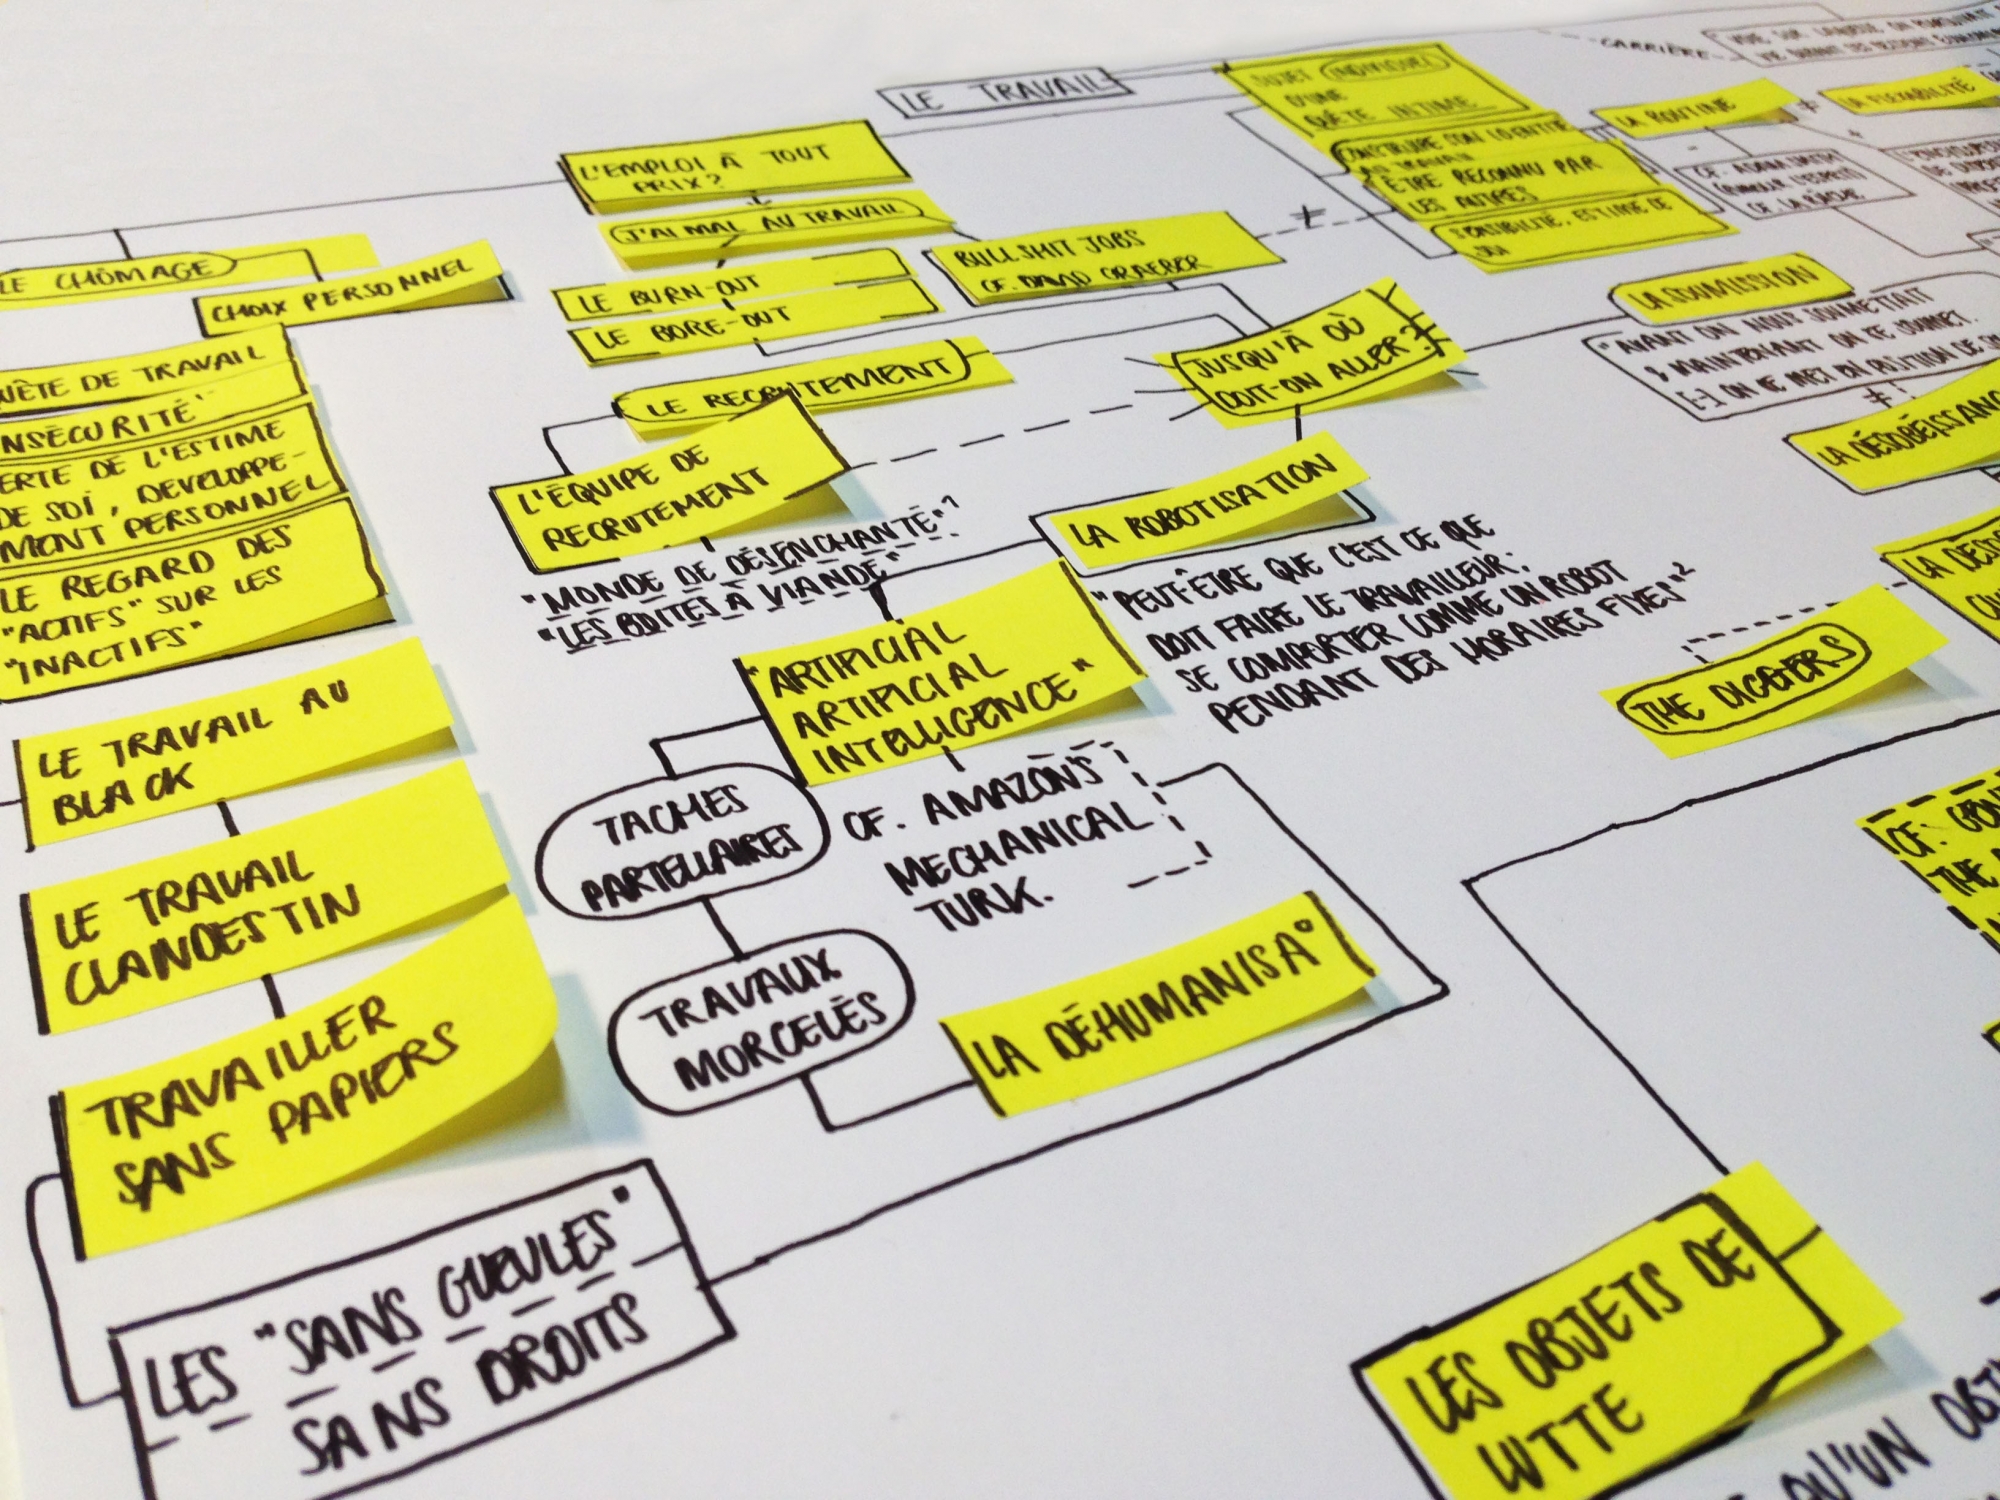 LE TRAVAIL
CARRIÈRE
SUJET INDIVIDUEL
D'UNE
QUÊTE INTIME
CONSTRUIRE SON IDENTITÉ
AU TRAVAIL
ÊTRE RECONNU PAR
LES AUTRES
ESTIME DE
SOI
LA ROUTINE
≠
LA FLEXIBILITÉ
CF. ADAM SMITH
L'EMPLOI À TOUT
PRIX?
J'AI MAL AU TRAVAIL
LE BURN-OUT
LE BORE-OUT
BULLSHIT JOBS
CF. DAVID GRAEBER
≠
LE CHÔMAGE
CHOIX PERSONNEL
UÊTE DE TRAVAIL
NSÉCURITÉ"
ERTE DE L'ESTIME
DE SOI, DEVELOPPE-
MENT PERSONNEL
LE REGARD DES
"ACTIFS" SUR LES
"INACTIFS"
LE TRAVAIL AU
BLACK
LE TRAVAIL
CLANDESTIN
TRAVAILLER
SANS PAPIERS
LES "SANS GUEULES"
SANS DROITS
LE RECRUTEMENT
L'ÉQUIPE DE
RECRUTEMENT
"MONDE DE DÉSENCHANTÉ"¹
"LES BOITES À VIANDE"
JUSQU'À OÙ
DOIT-ON ALLER?
LA ROBOTISATION
"PEUT-ÊTRE QUE C'EST CE QUE
DOIT FAIRE LE TRAVAILLEUR:
SE COMPORTER COMME UN ROBOT
PENDANT DES HORAIRES FIXES"²
"ARTIFICIAL
ARTIFICIAL
INTELLIGENCE"
CF. AMAZON'S
MECHANICAL
TURK.
TACHES
PARTELLAIRES
TRAVAUX
MORCELÉS
LA DÉHUMANISA°
LA SOUMISSION
"AVANT ON NOUS SOUMETTAIT
& MAINTENANT ON SE SOUMET.
[...] ON SE MET EN POSITION DE
≠
LA DÉSOBÉISSANC
THE DIGGERS
LES OBJETS DE
LUTTE
QU'UN